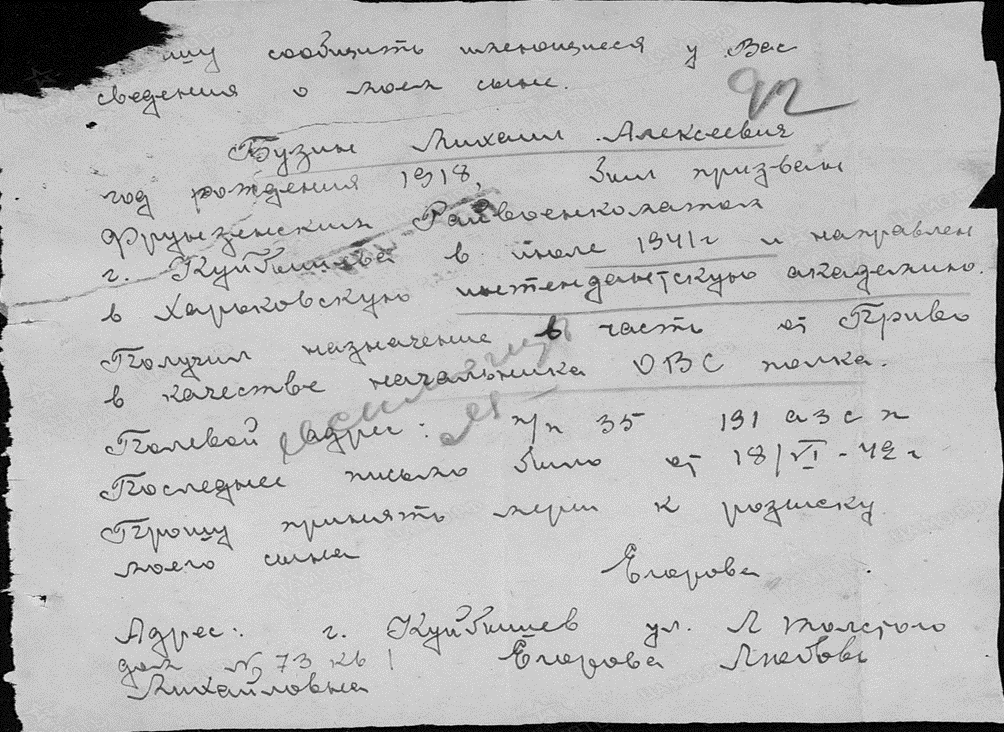 шу сообщить имеющиеся у Вас
сведения о моем сыне.
92
Бузин Михаил Алексеевич
год рождения 1918, был призван
Фрунзенским Райвоенкоматом
г. Куйбышева в июле 1941 г и направлен
в Харьковскую интендантскую академию.
Получил назначение в часть от Приво
в качестве начальника ОВС полка.
Полевой адрес: п/п 35 191 а з с п
Последнее письмо было от 18/VI - 42 г
Прошу принять меры к розыску
моего сына
Егорова
Адрес: г. Куйбышев ул. Л Толстого
дом № 73 кв 1 Егорова Любовь
Михайловна